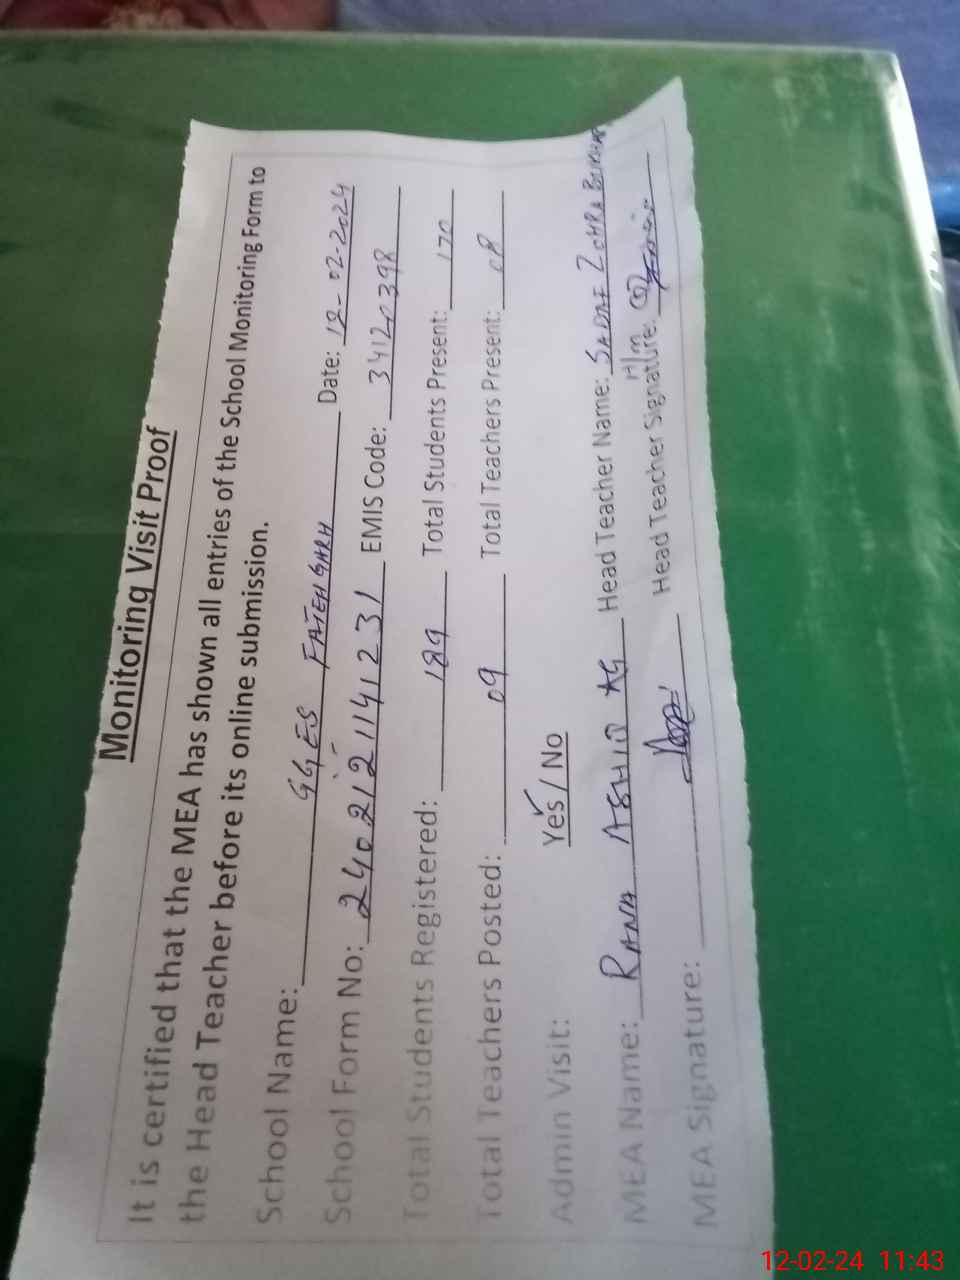 Monitoring Visit Proof
It is certified that the MEA has shown all entries of the School Monitoring Form to
the Head Teacher before its online submission.
School Name: GGES FATEH GARH Date: 12-02-2024
School Form No: 2402121141231 EMIS Code: 34120398
Total Students Registered: 189 Total Students Present: 170
Total Teachers Posted: 09 Total Teachers Present: 08
Admin Visit: Yes / No
MEA Name: RANA ASHIQ Head Teacher Name: SADAF ZOHRA BUKHARI
MEA Signature: Head Teacher Signature: H/m
12-02-24 11:43